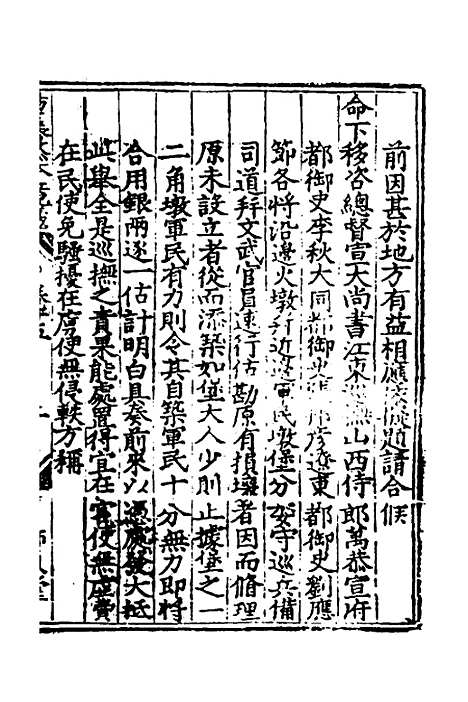 前因甚於地方有益相應議擬題請合候
命下移咨總督宣大尚書江東巡撫山西侍郎萬恭宣府
都御史李秋大同都御史遼東都御史劉應
節各將沿邊火墩附近邊軍民墩堡分守巡兵備
司道幷文武官員速行估勘原有損壞者因而脩理
原未設立者從而添築如堡大人少則止據堡之一
二角墩軍民有力則令其自築軍民十分無力即將
合用銀兩逐一估計明白具奏前來以憑處發大抵
此舉全是巡撫之責果能處置得宜在官使無虛費
在民使免騷擾在虜使無侵軼方稱